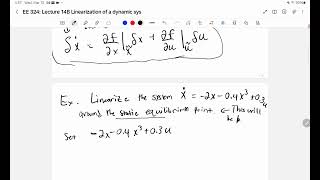 EE 324: Lecture 14B Linearization of a dynamic sys
δẋ = ∂f/∂x | δx + ∂f/∂u | δu
Ex. Linearize the system ẋ = -2x-0.4x³+0.3u
around the static equilibrium point. ← This will be
Set -2x-0.4x³+0.3u